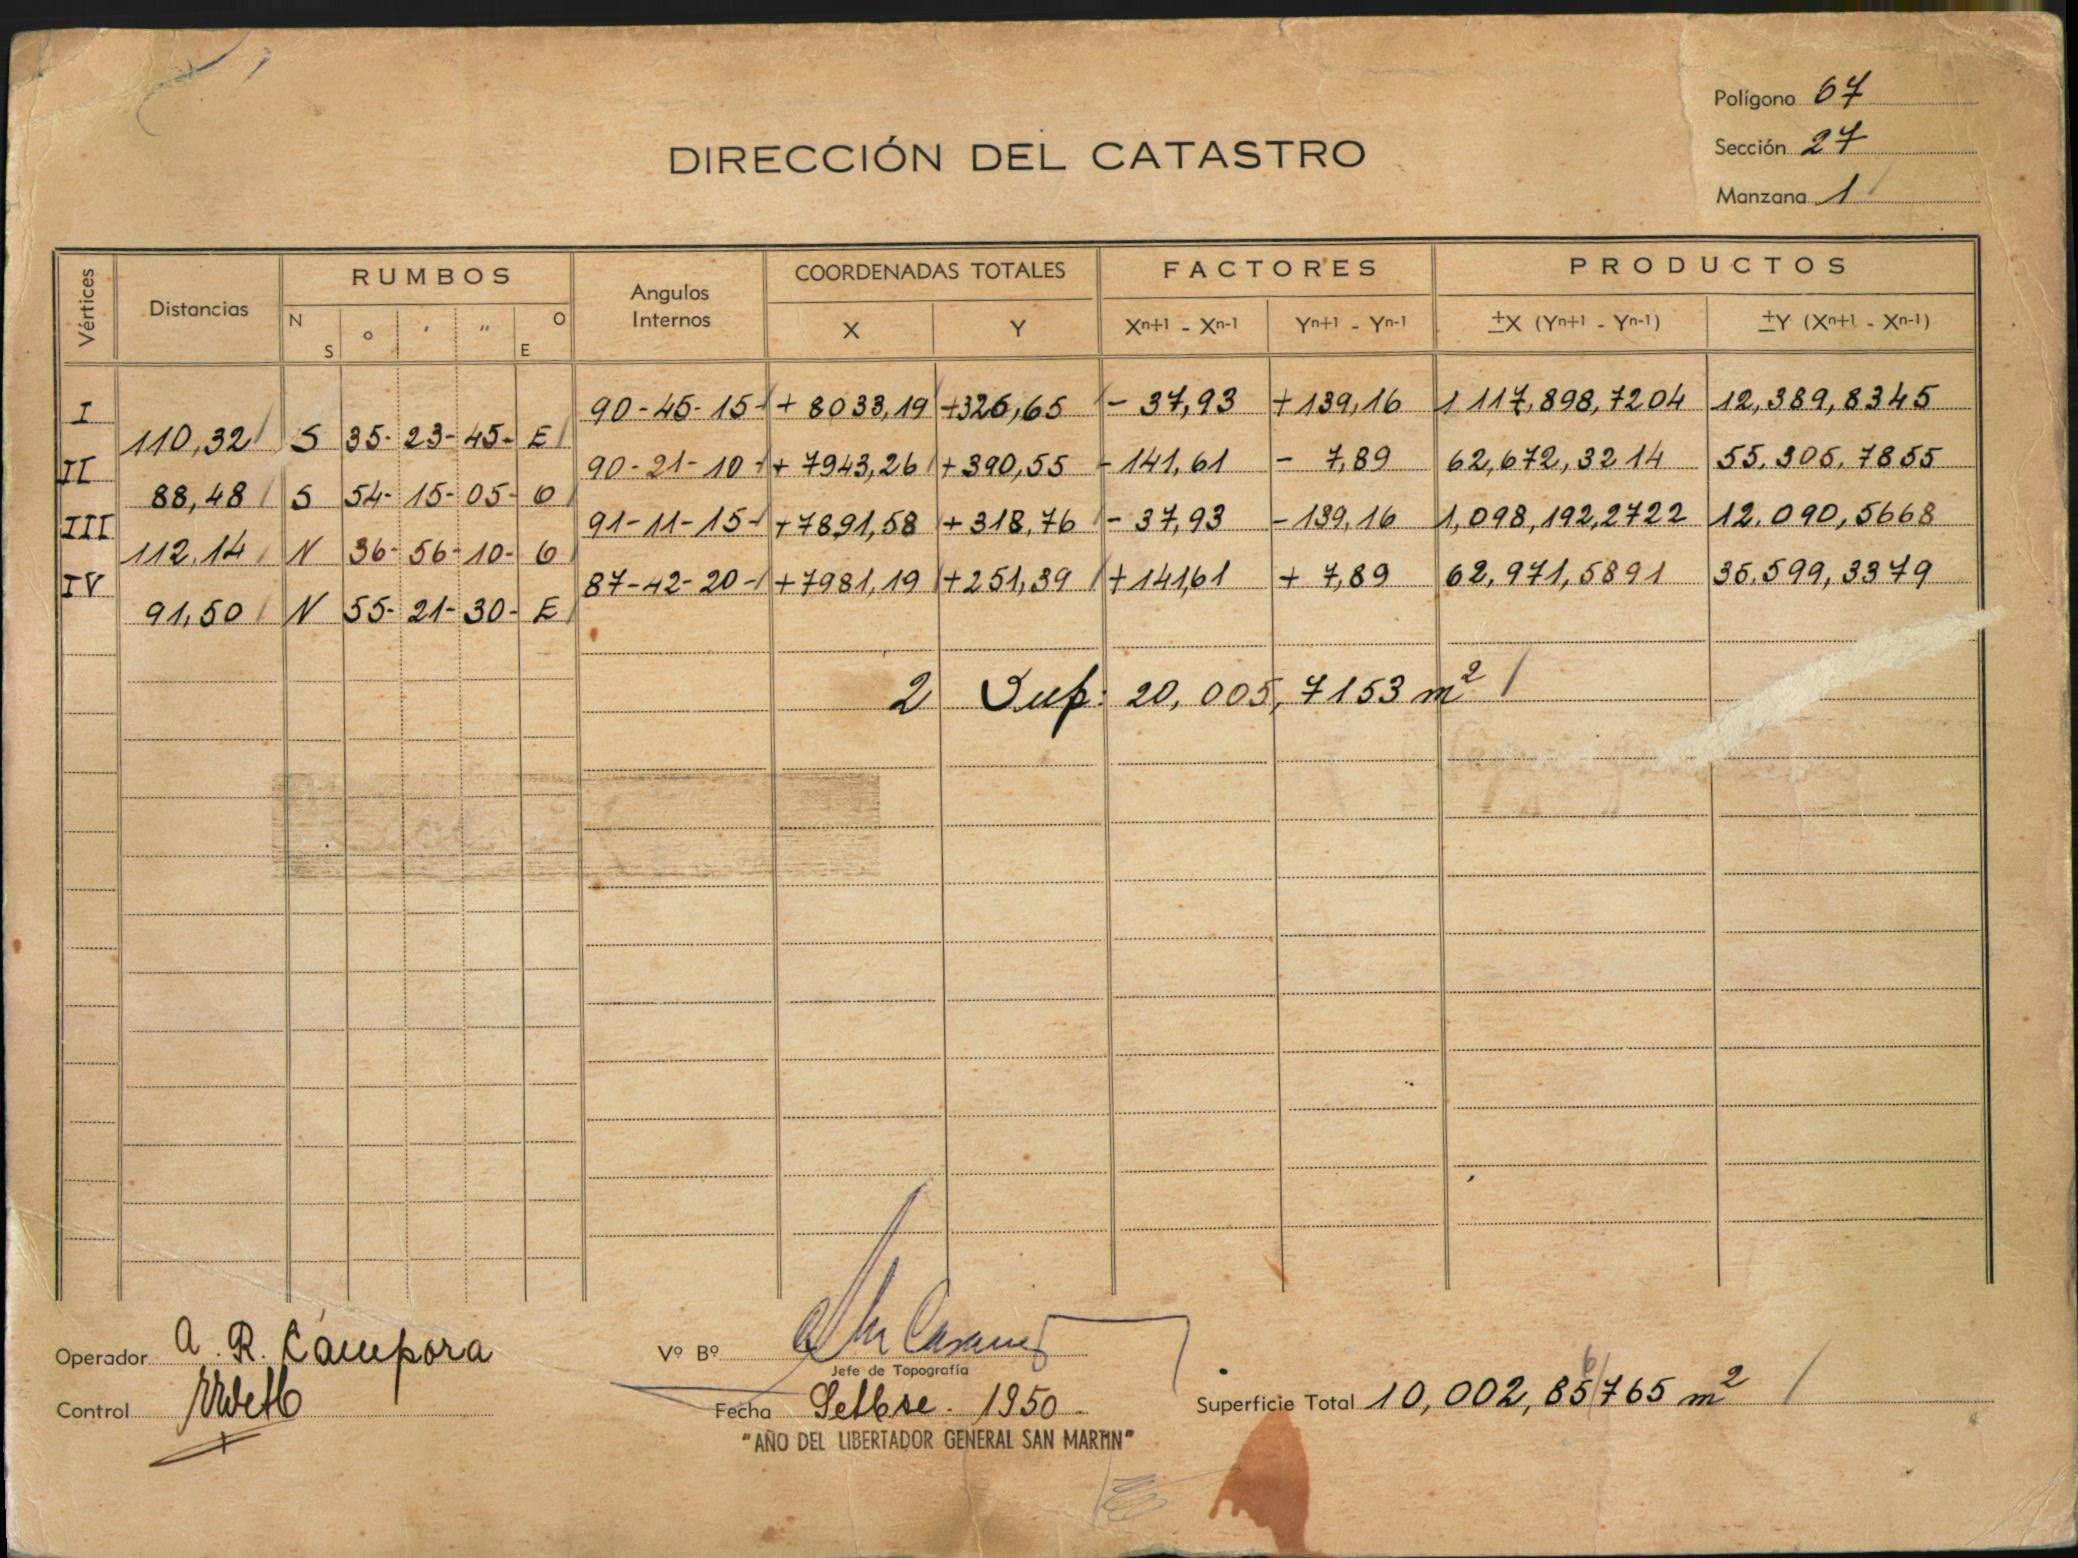 Polígono 67
Sección 27
Manzana 1
DIRECCIÓN DEL CATASTRO
Vértices Distancias RUMBOS Angulos Internos COORDENADAS TOTALES FACTORES PRODUCTOS
N S ° ' " O E X Y Xn+1 - Xn-1 Yn+1 - Yn-1 ±X (Yn+1 - Yn-1) ±Y (Xn+1 - Xn-1)
I 90-45-15- +8033,19 +326,65 - 37,93 +139,16 1117,898,7204 12,389,8345
110,32 S 35- 23- 45- E
II 90-21-10- + 7943,26 +390,55 - 141,61 - 7,89 62,672,3214 55.305.7855
88,48 S 54- 15- 05- O
III 91-11-15- +7891,58 +318,76 - 37,93 -139,16 1,098,192,2722 12.090,5668
112,14 N 36- 56- 10- O
IV 87-42-20- +7981,19 +251,39 +141,61 + 7,89 62,971,5891 35.599,3379
91,50 N 55- 21- 30- E
2 Sup: 20,005,7153 m²
Operador A. R. Cámpora
Vº Bº
Jefe de Topografía
Control
Fecha Setbre. 1950
Superficie Total 10,002,85765 m²
6
"AÑO DEL LIBERTADOR GENERAL SAN MARTIN"